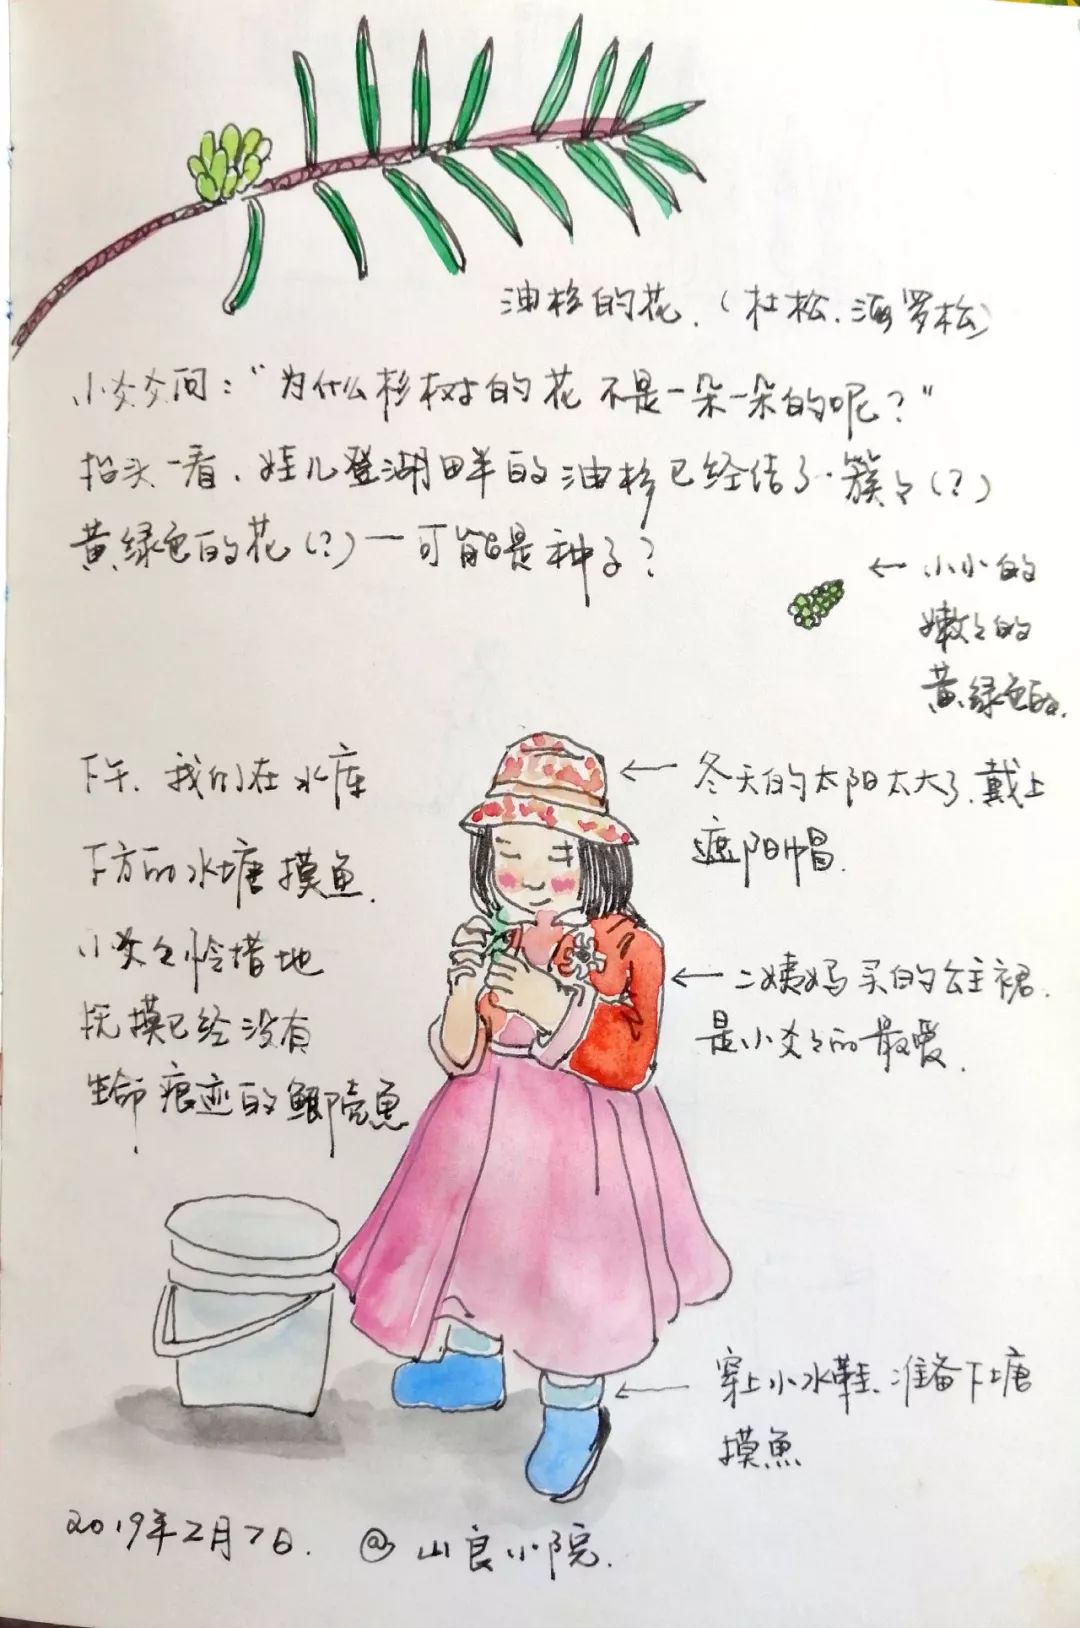 油杉的花.（杜松.海罗松）
小爻爻问：“为什么杉树的花不是一朵一朵的呢？”
抬头一看、娃儿登湖畔的油杉已经结了一簇々（？）
黄绿色的花（？）一可能是种子？
← 小小的
嫩々的
黄绿色的.
下午、我们在水库
下方的水塘摸鱼.
小爻々怜惜地
抚摸已经没有
生命痕迹的鲫壳鱼.
← 冬天的太阳太大了.戴上
遮阳帽.
← 二姨妈买的公主裙.
是小爻々的最爱.
← 穿上小水鞋、准备下塘
摸魚
2019年2月7日. @山良小院.